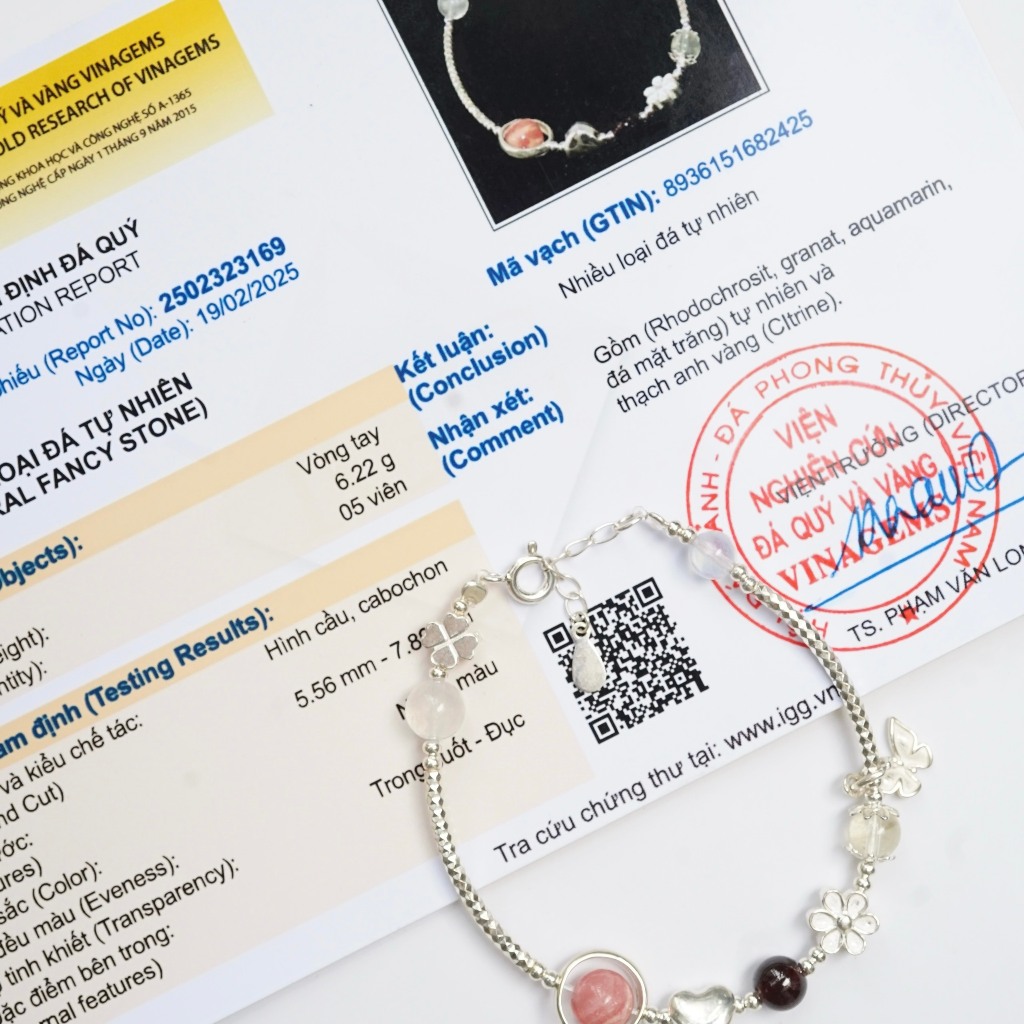 Ý VÀ VÀNG VINAGEMS
OLD RESEARCH OF VINAGEMS
NG KHOA HỌC VÀ CÔNG NGHỆ SỐ A-1365
NG NGHỆ CẤP NGÀY 1 THÁNG 9 NĂM 2015
ĐỊNH ĐÁ QUÝ
ATION REPORT
hiếu (Report No): 2502323169
Ngày (Date): 19/02/2025
OẠI ĐÁ TỰ NHIÊN
RAL FANCY STONE)
bjects):
Vòng tay
eight):
6.22 g
ntity):
05 viên
ám định (Testing Results):
và kiểu chế tác:
Hình cầu, cabochon
nd Cut)
ước:
5.56 mm - 7.8
ures)
sắc (Color):
màu
đều màu (Eveness):
Trong suốt - Đục
tinh khiết (Transparency):
ặc điểm bên trong:
rnal features)
Mã vạch (GTIN): 8936151682425
Kết luận:
(Conclusion)
Nhiều loại đá tự nhiên
Nhận xét:
(Comment)
Gồm (Rhodochrosit, granat, aquamarin,
đá mặt trăng) tự nhiên và
thạch anh vàng (CItrine).
VIỆN TRƯỞNG (DIRECTOR
ẢNH - ĐÁ PHONG THỦY VIỆT NAM
VIỆN
NGHIÊN CỨU
ĐÁ QUÝ VÀ VÀNG
VINAGEMS
TS. PHẠM VĂN LON
Tra cứu chứng thư tại: www.igg.vn